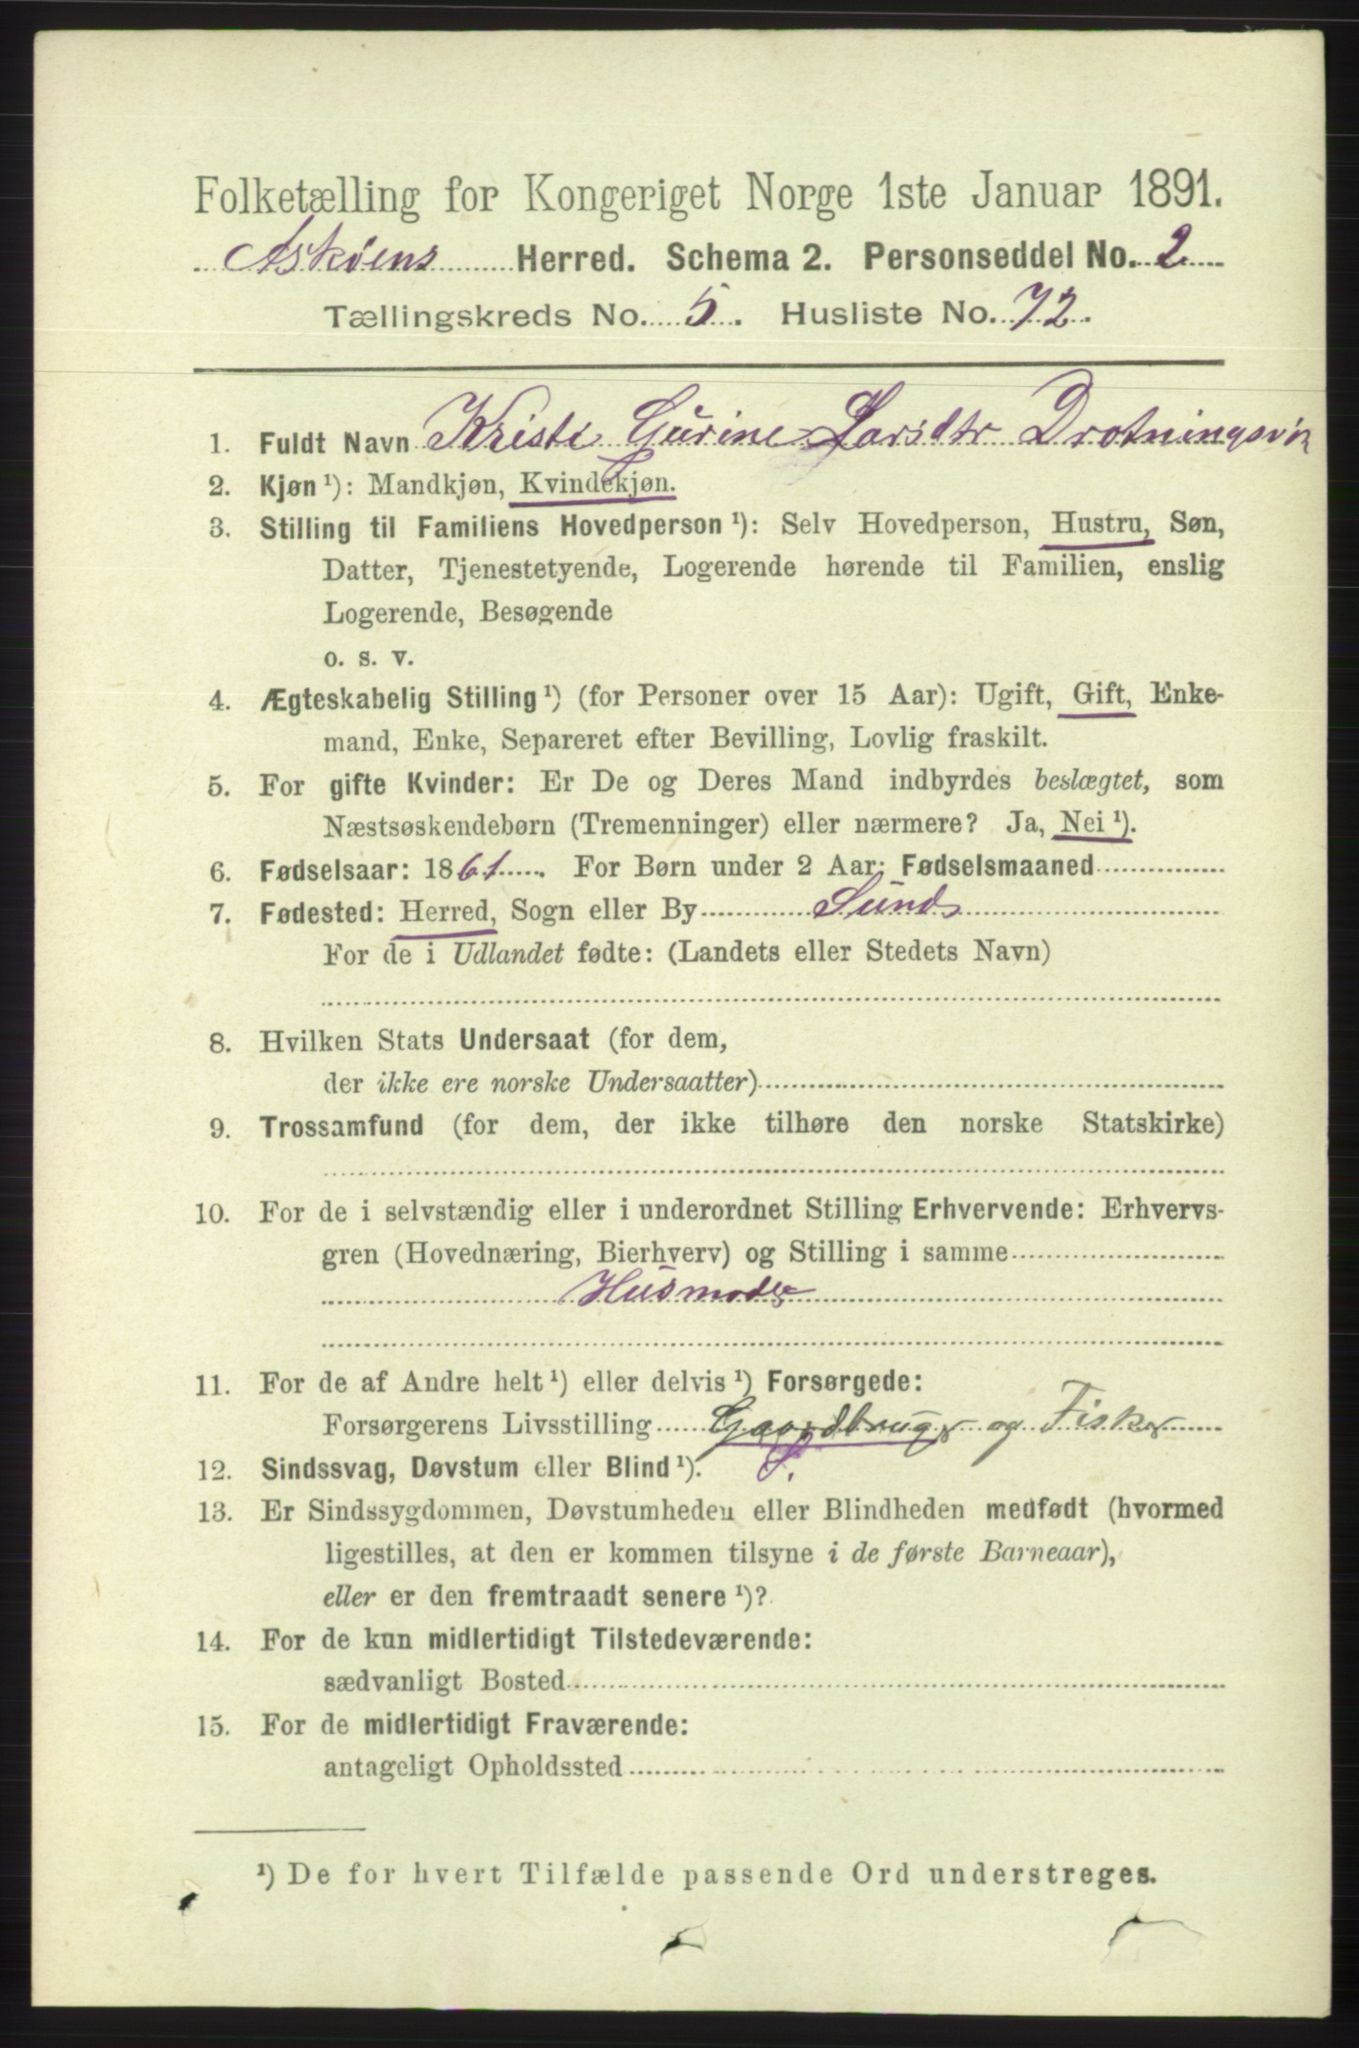 Folketælling for Kongeriget Norge 1ste Januar 1891.
Askøens Herred. Schema 2. Personseddel No. 2
Tællingskreds No. 5. Husliste No. 72.
1. Fuldt Navn Kristi Gurine Larsdtr Drotningsvik
2. Kjøn ¹): Mandkjøn, Kvindekjøn.
3. Stilling til Familiens Hovedperson ¹): Selv Hovedperson, Hustru, Søn,
Datter, Tjenestetyende, Logerende hørende til Familien, enslig
Logerende, Besøgende
o. s. v.
4. Ægteskabelig Stilling ¹) (for Personer over 15 Aar): Ugift, Gift, Enke-
mand, Enke, Separeret efter Bevilling, Lovlig fraskilt.
5. For gifte Kvinder: Er De og Deres Mand indbyrdes beslægtet, som
Næstsøskendebørn (Tremenninger) eller nærmere? Ja, Nei ¹).
6. Fødselsaar: 1861. For Børn under 2 Aar: Fødselsmaaned
7. Fødested: Herred, Sogn eller By Sunds
For de i Udlandet fødte: (Landets eller Stedets Navn)
8. Hvilken Stats Undersaat (for dem,
der ikke ere norske Undersaatter)
9. Trossamfund (for dem, der ikke tilhøre den norske Statskirke)
10. For de i selvstændig eller i underordnet Stilling Erhvervende: Erhvervs-
gren (Hovednæring, Bierhverv) og Stilling i samme
Husmoder
11. For de af Andre helt ¹) eller delvis ¹) Forsørgede:
Forsørgerens Livsstilling Gaardbruger og Fisker
12. Sindssvag, Døvstum eller Blind ¹).
13. Er Sindssygdommen, Døvstumheden eller Blindheden medfødt (hvormed
ligestilles, at den er kommen tilsyne i de første Barneaar),
eller er den fremtraadt senere ¹)?
14. For de kun midlertidigt Tilstedeværende:
sædvanligt Bosted
15. For de midlertidigt Fraværende:
antageligt Opholdssted
¹) De for hvert Tilfælde passende Ord understreges.